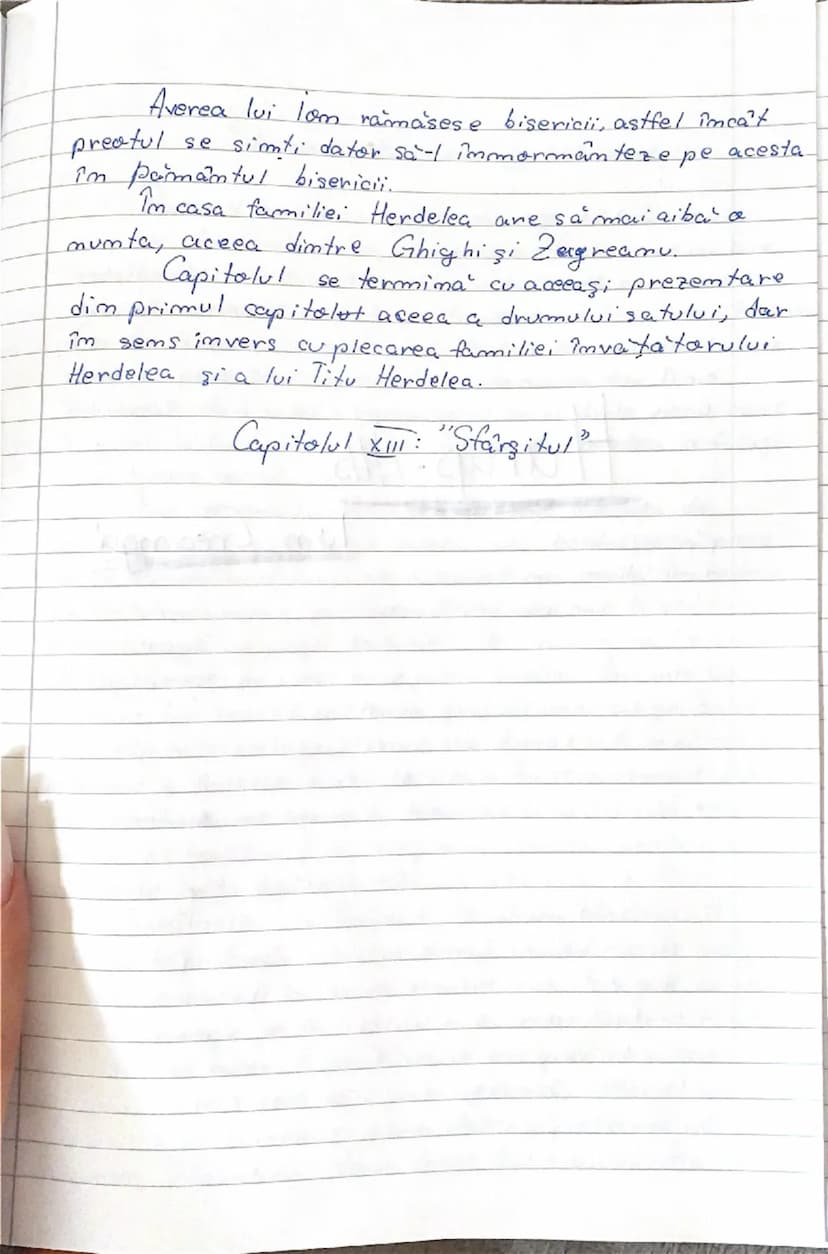 Averea lui Ion rămăsese bisericii, astfel încât
preotul se simți dator să-l înmormânteze pe acesta
în pământul bisericii.
În casa familiei Herdelea are să mai aibă o
nunta, aceea dintre Ghighi și Zagreanu.
Capitolul se termină cu aceeași prezentare
din primul capitolul aceea a drumului satului, dar
în sens invers cu plecarea familiei învățătorului
Herdelea și a lui Titu Herdelea.
Capitolul XIII: "Sfârșitul"